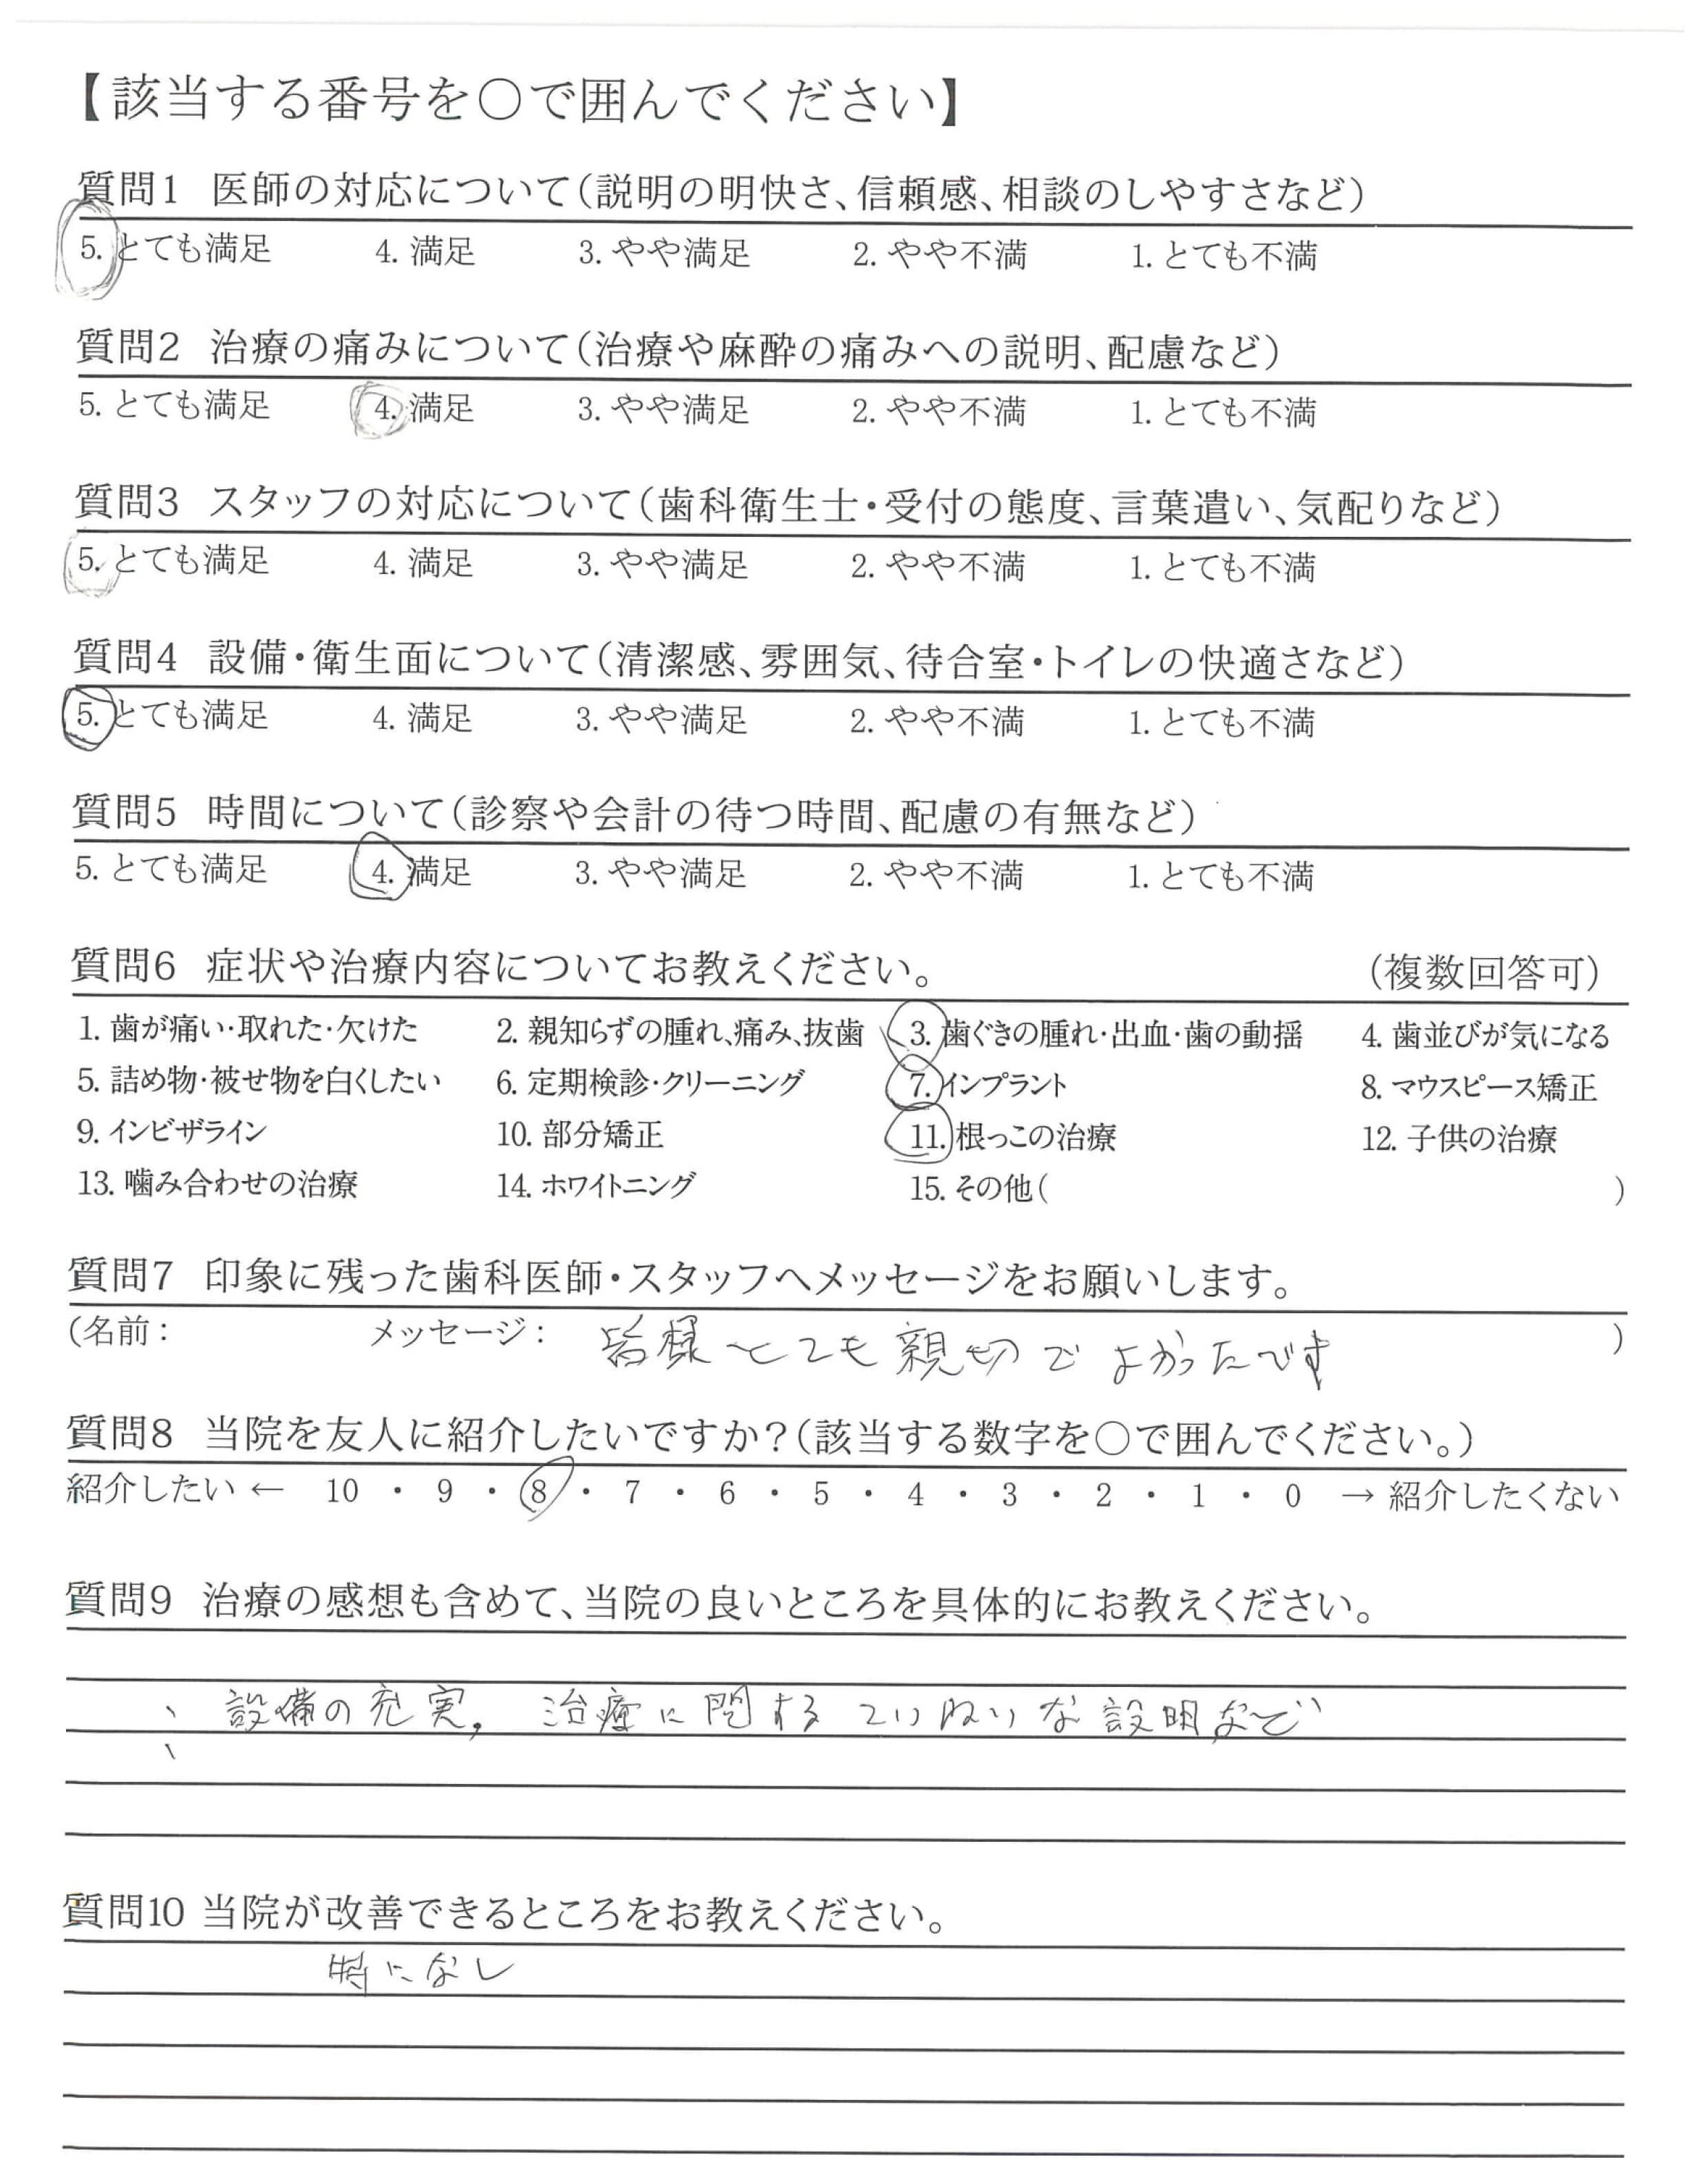 【該当する番号を○で囲んでください】
質問1 医師の対応について(説明の明快さ、信頼感、相談のしやすさなど)
5. とても満足 4. 満足 3. やや満足 2. やや不満 1. とても不満
質問2 治療の痛みについて(治療や麻酔の痛みへの説明、配慮など)
5. とても満足 4. 満足 3. やや満足 2. やや不満 1. とても不満
質問3 スタッフの対応について(歯科衛生士・受付の態度、言葉遣い、気配りなど)
5. とても満足 4. 満足 3. やや満足 2. やや不満 1. とても不満
質問4 設備・衛生面について(清潔感、雰囲気、待合室・トイレの快適さなど)
5. とても満足 4. 満足 3. やや満足 2. やや不満 1. とても不満
質問5 時間について(診察や会計の待つ時間、配慮の有無など)
5. とても満足 4. 満足 3. やや満足 2. やや不満 1. とても不満
質問6 症状や治療内容についてお教えください。 (複数回答可)
1. 歯が痛い・取れた・欠けた 2. 親知らずの腫れ、痛み、抜歯 3. 歯ぐきの腫れ・出血・歯の動揺 4. 歯並びが気になる
5. 詰め物・被せ物を白くしたい 6. 定期検診・クリーニング 7. インプラント 8. マウスピース矯正
9. インビザライン 10. 部分矯正 11. 根っこの治療 12. 子供の治療
13. 噛み合わせの治療 14. ホワイトニング 15. その他( )
質問7 印象に残った歯科医師・スタッフへメッセージをお願いします。
(名前: メッセージ: 皆様とても親切でよかったです )
質問8 当院を友人に紹介したいですか?(該当する数字を○で囲んでください。)
紹介したい ← 10 ・ 9 ・ 8 ・ 7 ・ 6 ・ 5 ・ 4 ・ 3 ・ 2 ・ 1 ・ 0 → 紹介したくない
質問9 治療の感想も含めて、当院の良いところを具体的にお教えください。
設備の充実, 治療に関するていねいな説明など
質問10 当院が改善できるところをお教えください。
特になし